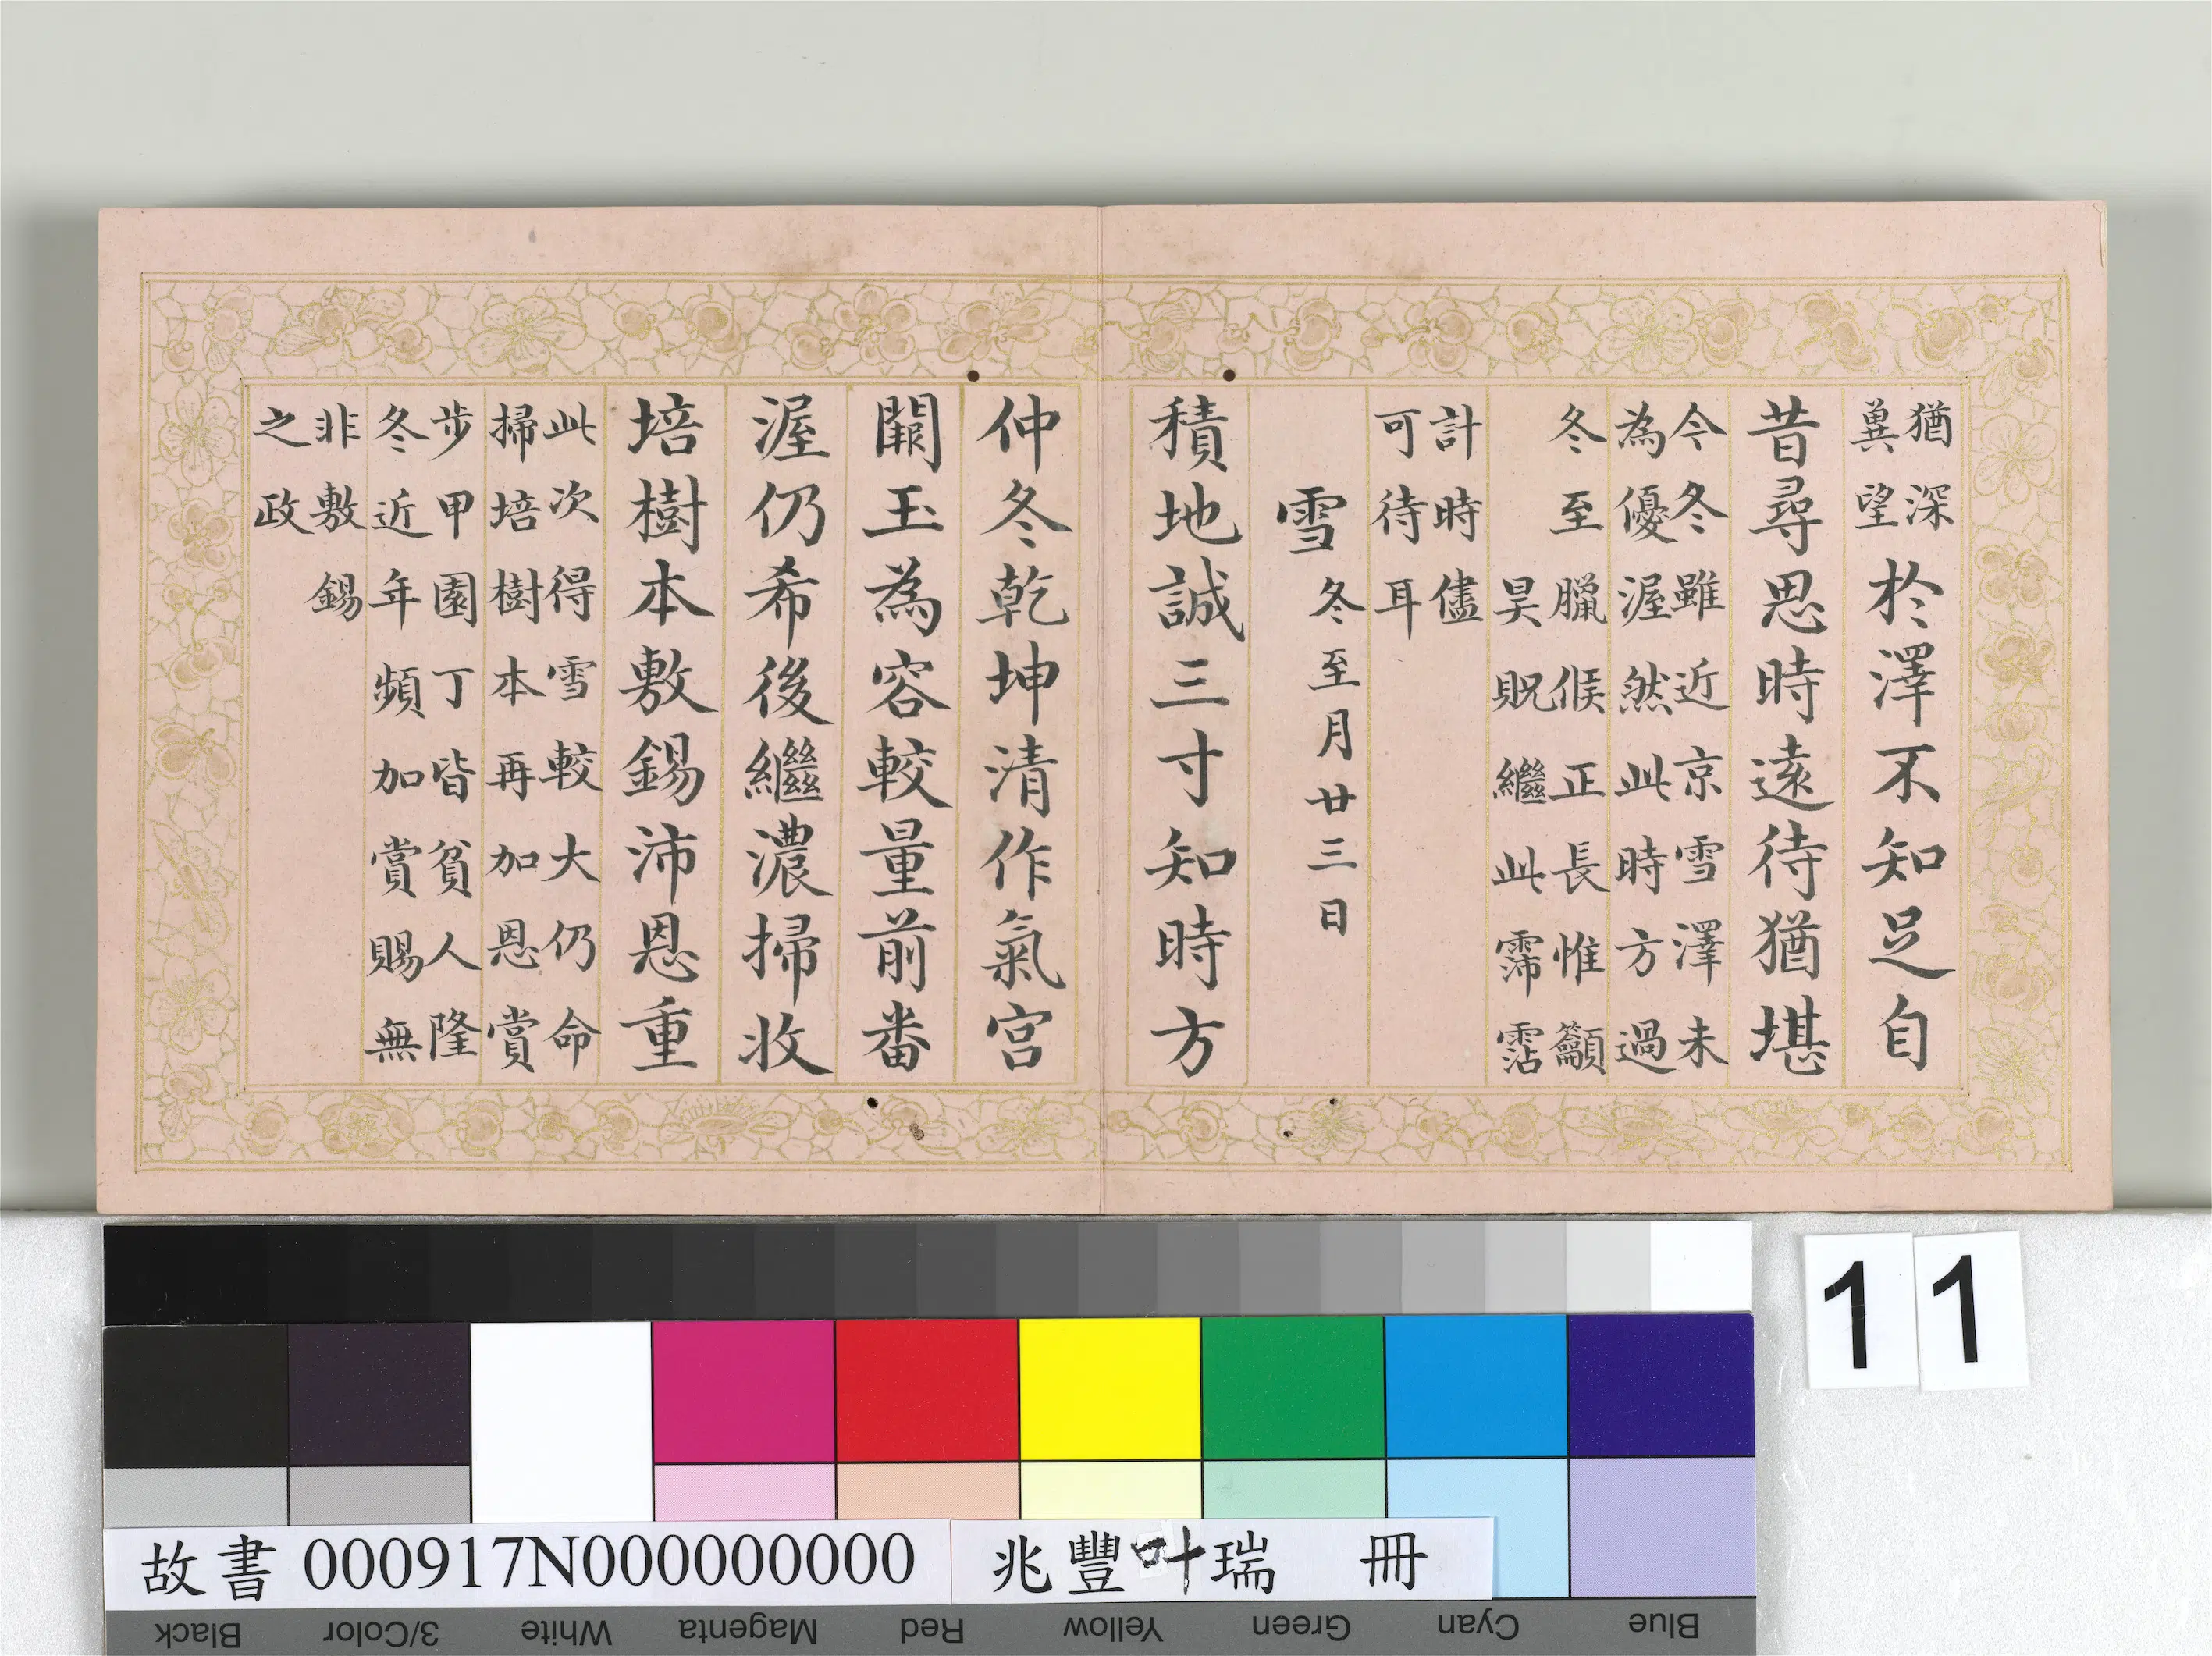 猶深
兾望
於澤不知足自
昔尋思時遠待猶堪
今冬雖近京雪澤未
為優渥然此時方過
冬至臘候正長惟籲
昊貺繼此霈霑
計時儘
可待耳
雪冬至月廿三日
積地誠三寸知時方
仲冬乾坤清作氣宮
闕玉為容較量前番
渥仍希後繼濃掃收
培樹本敷錫沛恩重
此次得雪較大仍命
掃培樹本再加恩賞
步甲園丁皆貧人隆
冬近年頻加賞賜無
非敷錫
之政
11
故書 000917N000000000 兆豐叶瑞 冊
Black 3/Color White Magenta Red Yellow Green Cyan Blue